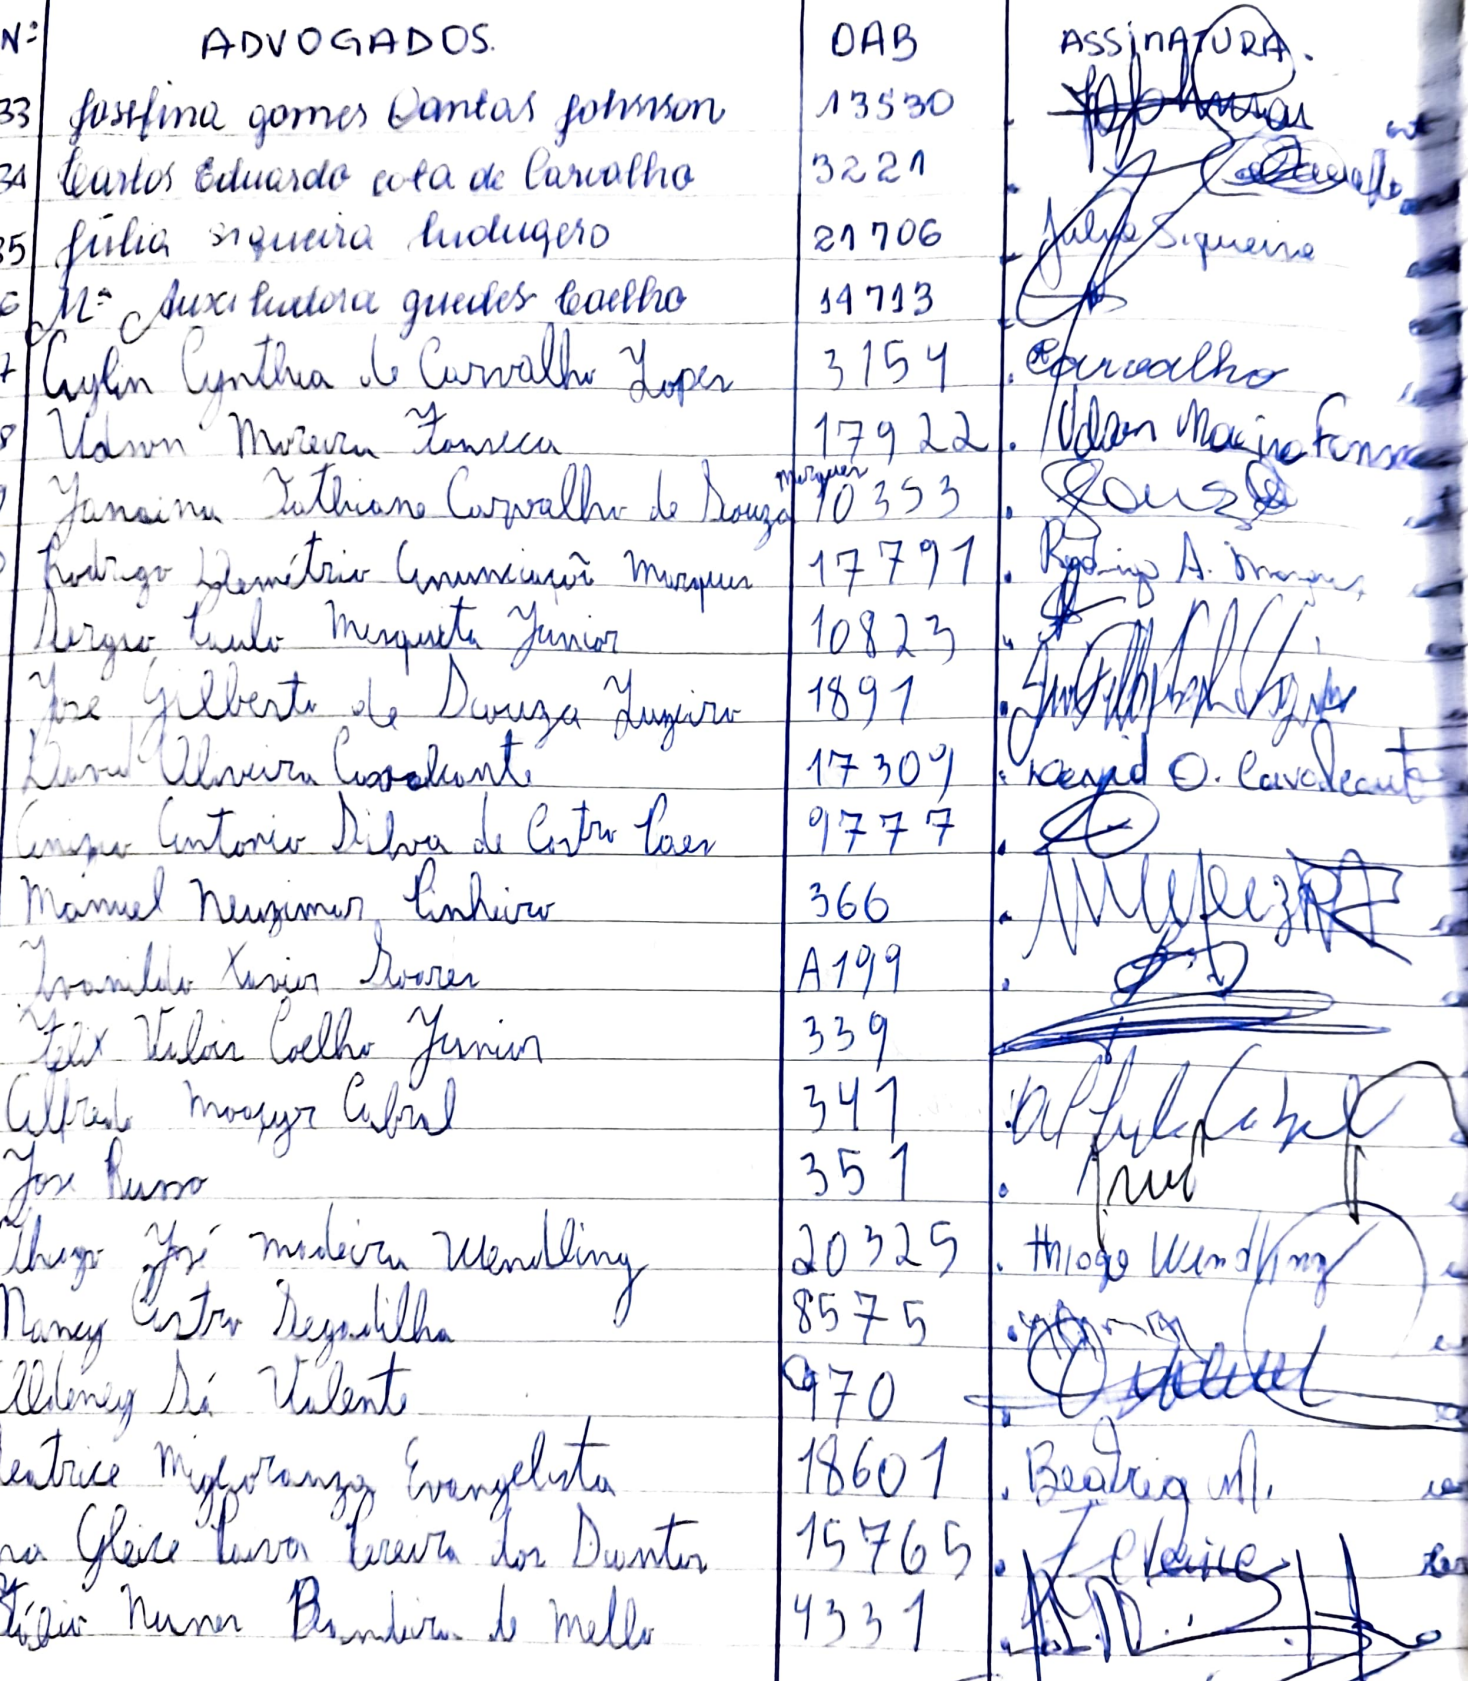 Nº ADVOGADOS. OAB ASSINATURA.
33 Josefina gomes Dantas Johnson 13530
34 Carlos Eduardo cota de Carvalho 3221
35 Júlia siqueira ludugero 21706 Julia Siqueira
6 Mª Auxiliadora guedes Coelho 14713
7 Cynthia de Carvalho Lopes 3154 Carvalho
8 Udson Moreira Fonseca 17922 Udson Moreira Fonseca
Janaina Tathiane Carvalho de Souza Marques 10353 Souza
Rodrigo Demétrio Anunciação Marques 17791 Rodrigo A. Marques
Sergio Paulo Mesquita Junior 10823
José Gilberto de Souza Luzeiro 1891
David Oliveira Cavalcante 17309 David O. Cavalcante
Antonio Silva de Castro Paes 9777
Manuel Neuzimar Pinheiro 366
Ivanildo Xavier Soares A199
Felix Valois Coelho Junior 339
Alfredo Moacyr Cabral 341 Cabral
Jose Russo 351
Thiago José Madeira Wendling 20325 Thiago Wendling
Nancy Castro Segadilha 8575
Aldeney Sá Valente 970
eatrice Migloranza Evangelista 18601 Beatriz M.
na Gleice Paiva Pereira dos Santos 15765
Nunes Bandeira de Mello 4331